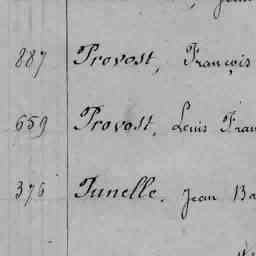 887 Provost, François
659 Provost, Louis Fran
376 Punelle, Jean Ba